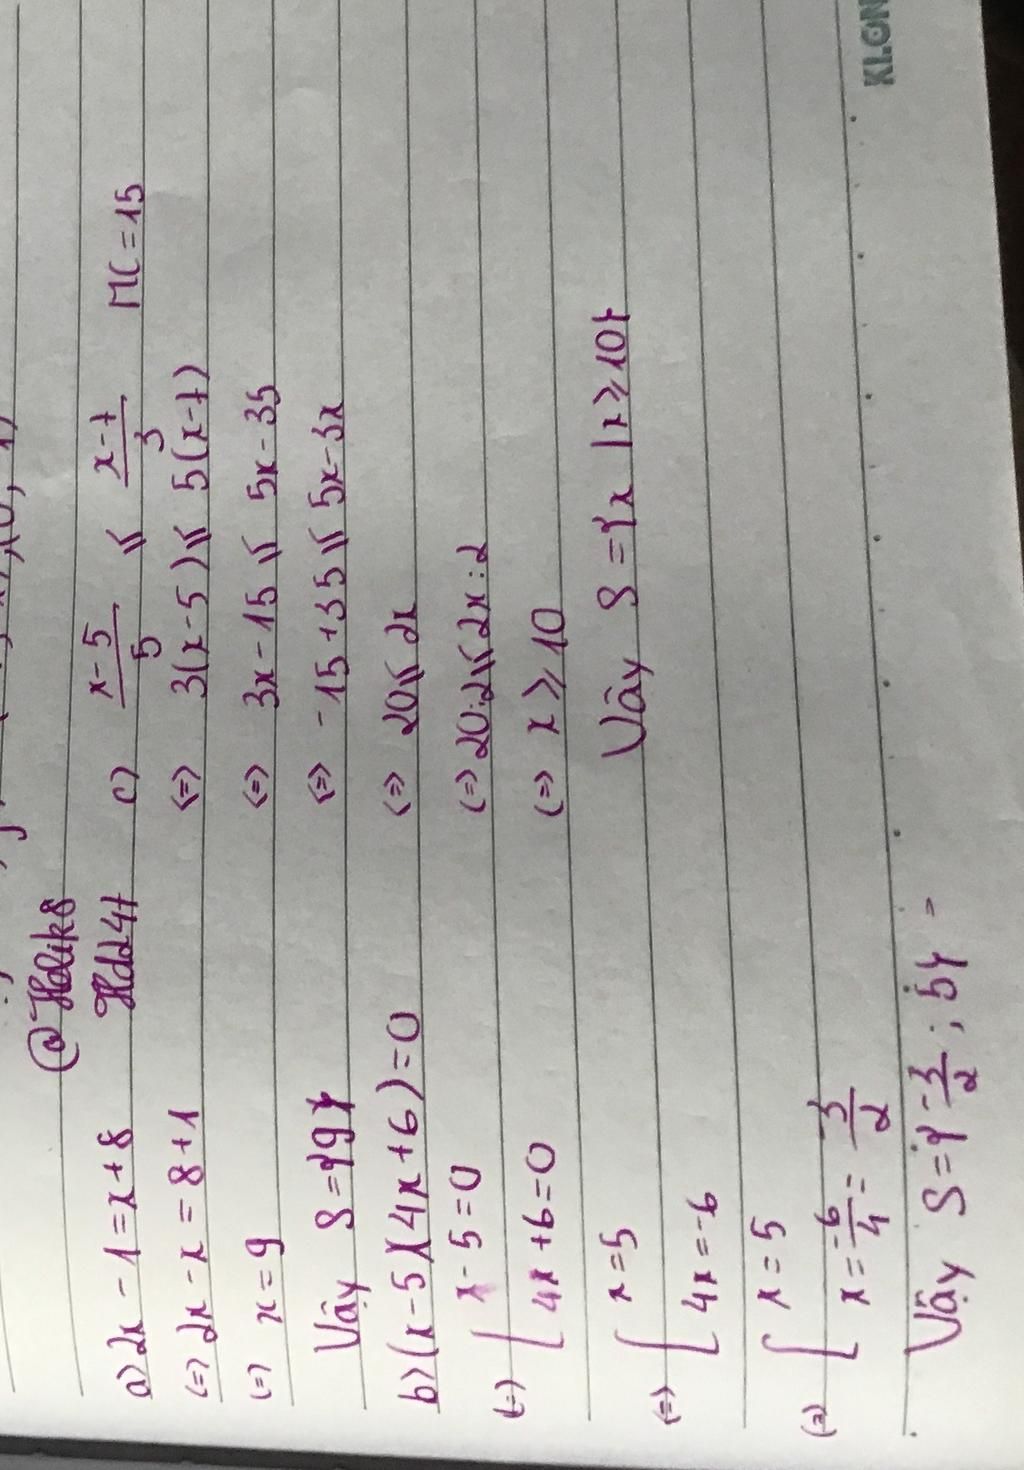 @Holik8
Hdd47
a) 2x - 1 = x + 8
(=) 2x - x = 8 + 1
(=) x = 9
Vậy S = {9}
b) (x - 5)(4x + 6) = 0
(=) [ x - 5 = 0
4x + 6 = 0
(=) [ x = 5
4x = -6
(=) [ x = 5
x = -6/4 = -3/2
Vậy S = {-3/2; 5}
c) x-5/5 ≤ x-7/3 MC = 15
(=) 3(x-5) ≤ 5(x-7)
(=) 3x - 15 ≤ 5x - 35
(=) -15 + 35 ≤ 5x - 3x
(=) 20 ≤ 2x
(=) 20:2 ≤ 2x:2
(=) x ≥ 10
Vậy S = {x | x ≥ 10}